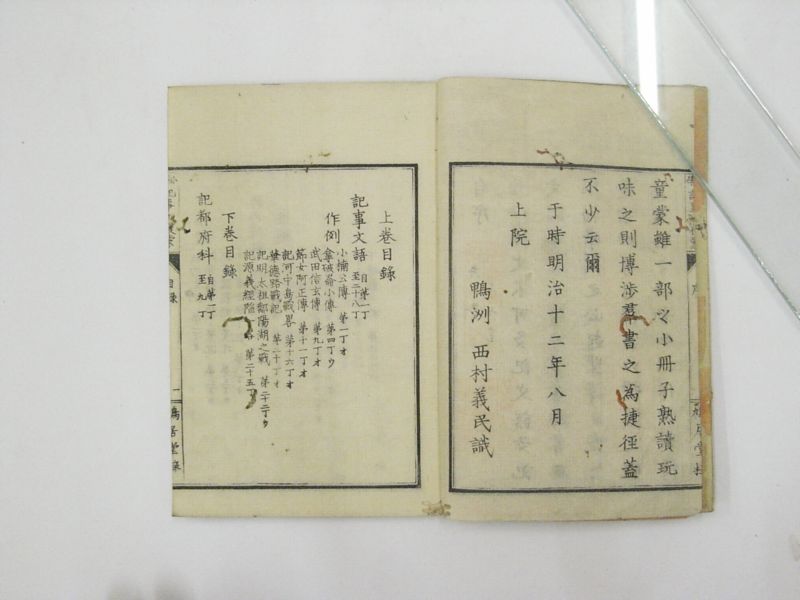 童蒙雖一部之小冊子熟讀玩
味之則博渉羣書之為捷徑蓋
不少云爾
于時明治十二年八月
上院
鴨洲 西村義民識
上卷目錄
記事文語 自第一丁 至二十八丁
作例
小楠公傳 第一丁オ
拿破崙小傳 第四丁ウ
武田信玄傳 第九丁オ
節女阿正傳 第十一丁オ
記河中島戰畧 第十六丁オ
戰記 第二十丁オ
記明太祖鄱陽湖之戰 第二十二丁ウ
記源義經 第二十五丁
下卷目錄
記都府科 自第一丁 至九丁
目錄